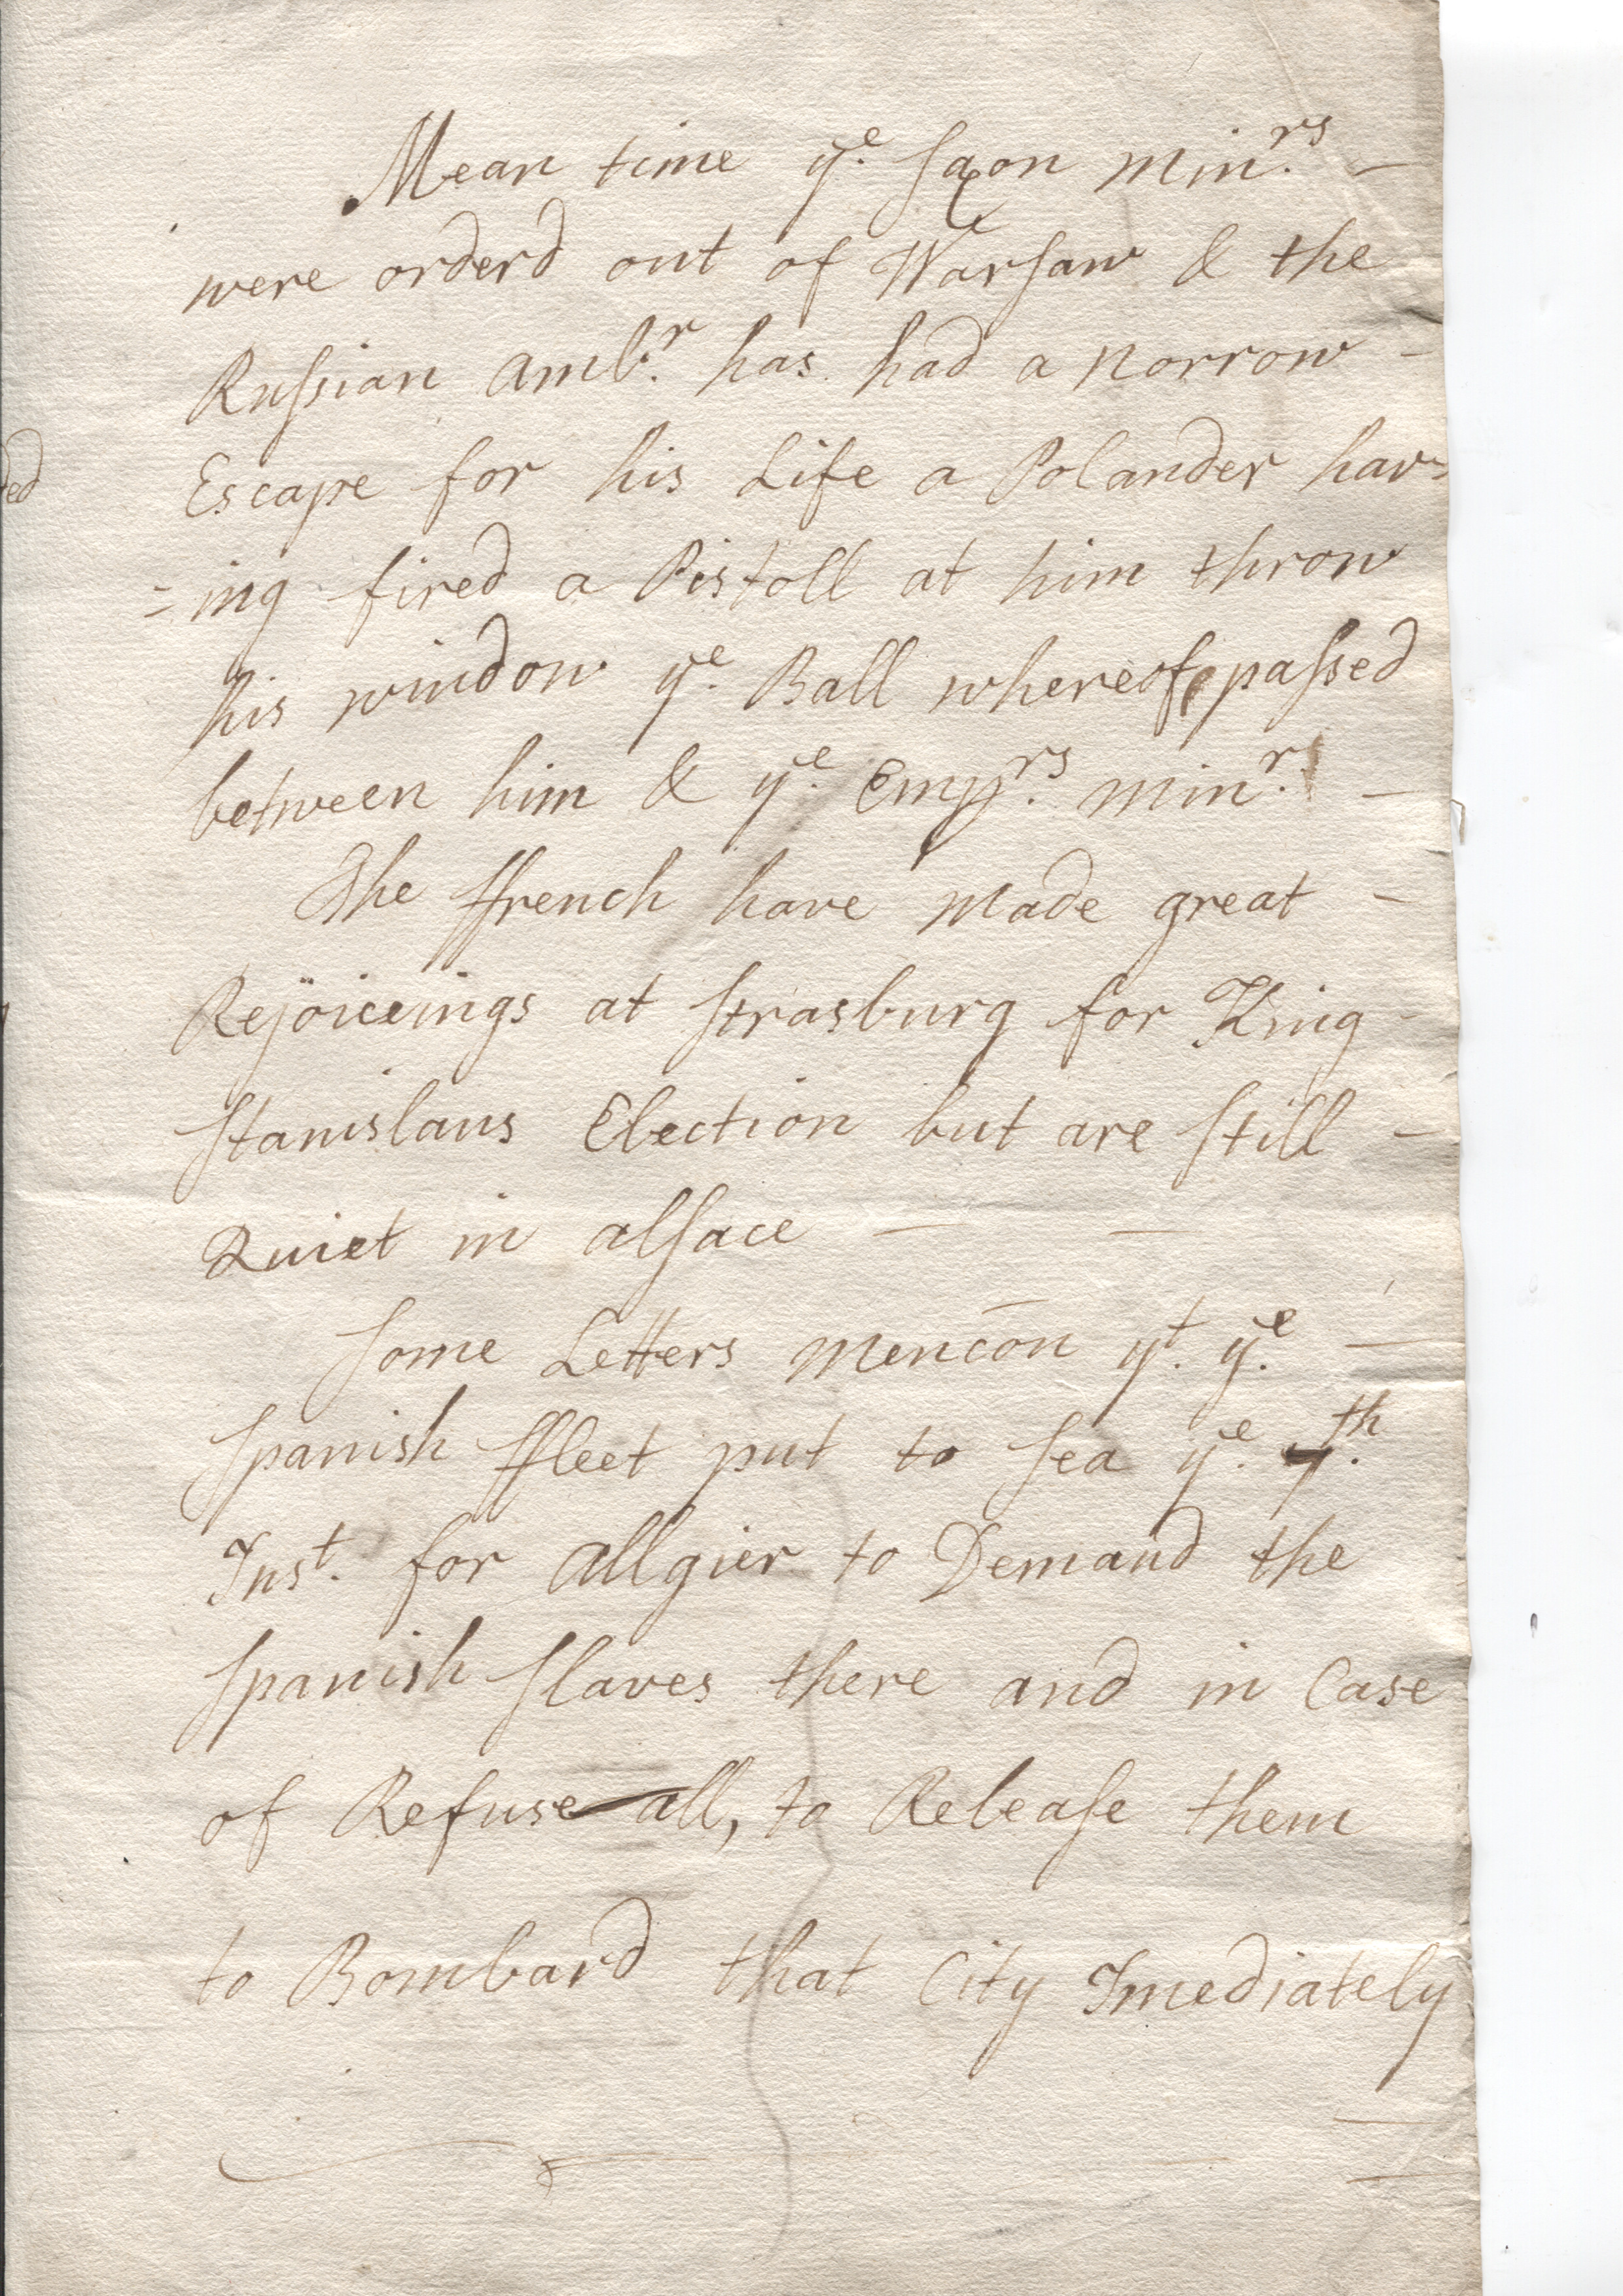 Mean time yᵉ. Saxon minʳˢ. –
were orderd out of Warſaw & the
Ruſsian Ambʳ. has had a Norrow –
Escape for his Life a Polander hav=
=ing fired a Pistoll at him throw
his window yᵉ. Ball whereof paſsed
between him & yᵉ. Empʳˢ. minʳ. –
The ffrench have made great –
Rejoiceings at Strasburg for King –
Stanislaus Election but are Still –
Quiet in alſace – –
Some Letters mencōn yᵗ. yᵉ. –
Spanish ffleet put to Sea yᵉ. 7ᵗʰ.
Insᵗ. for Allgier to Demand the
Spanish Slaves there and in Case
of Refuse all, to Releaſe them
to Bombard that City Imediately